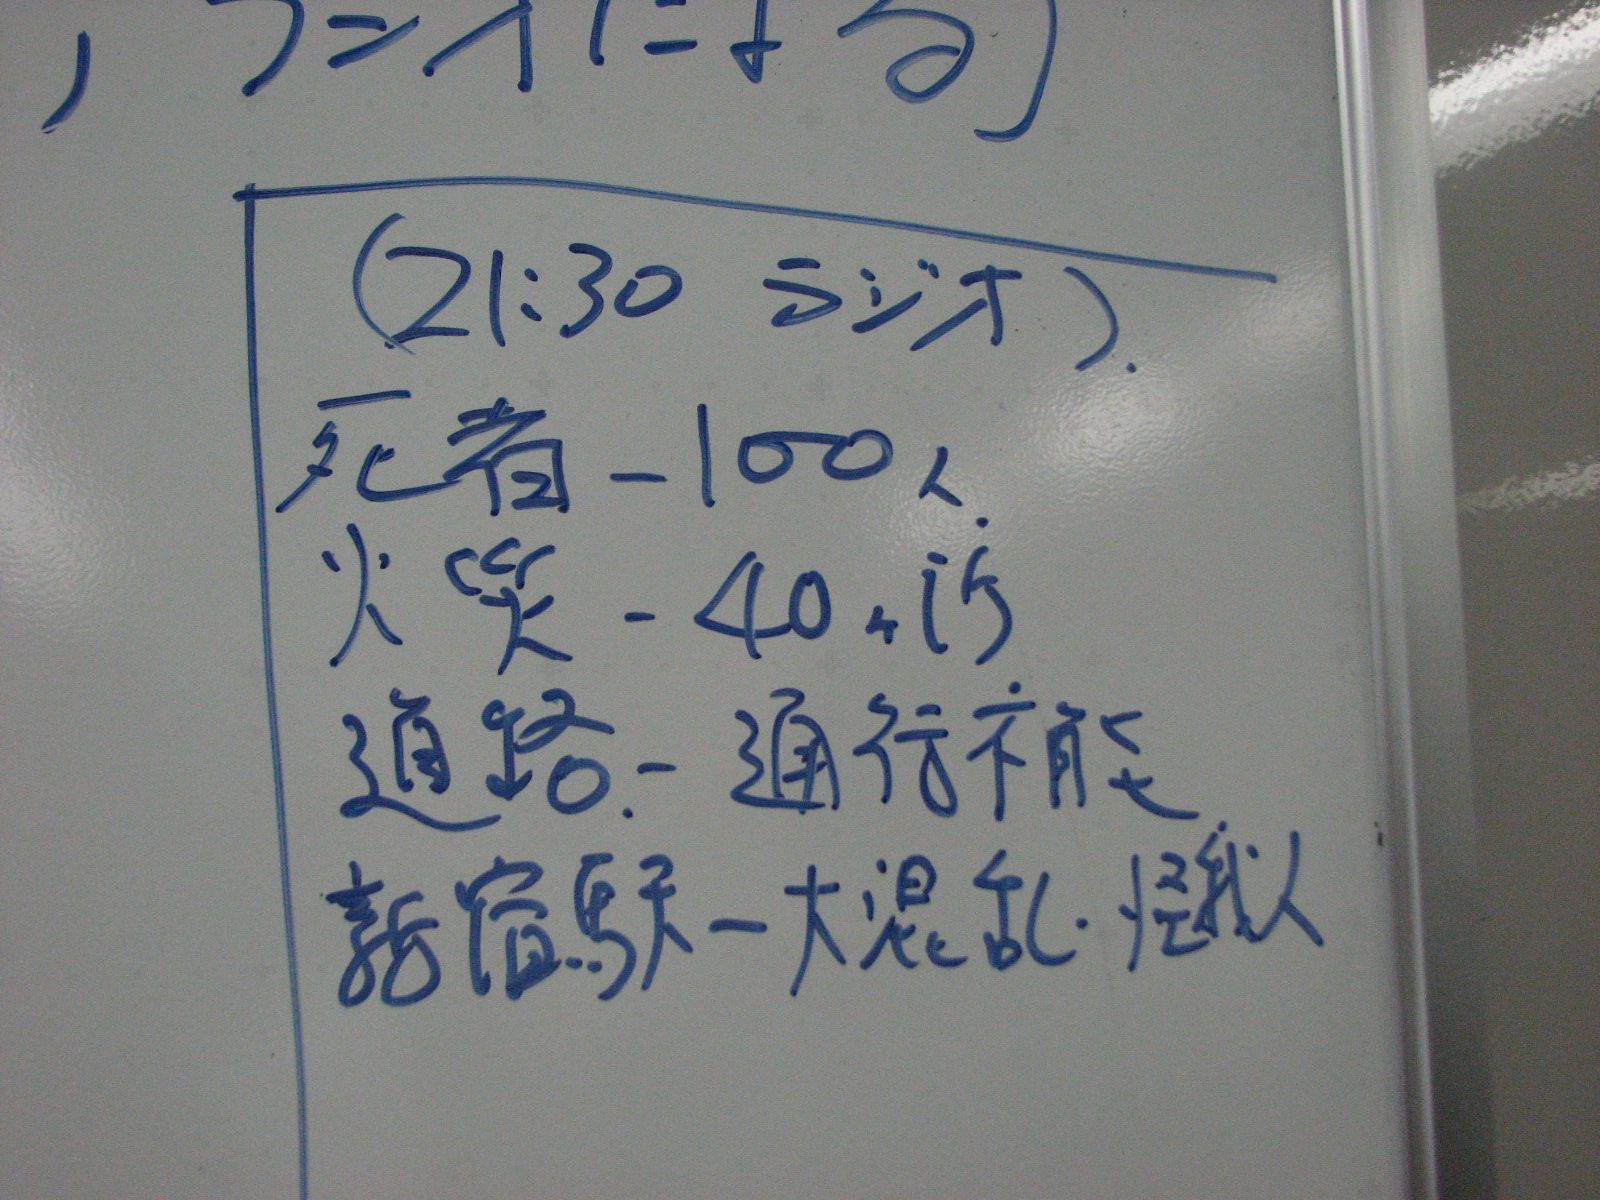 , ラジオによる)
(21:30 ラジオ).
死者-100人.
火災-40ヶ所
道路.-通行不能
新宿駅-大混乱.怪我人